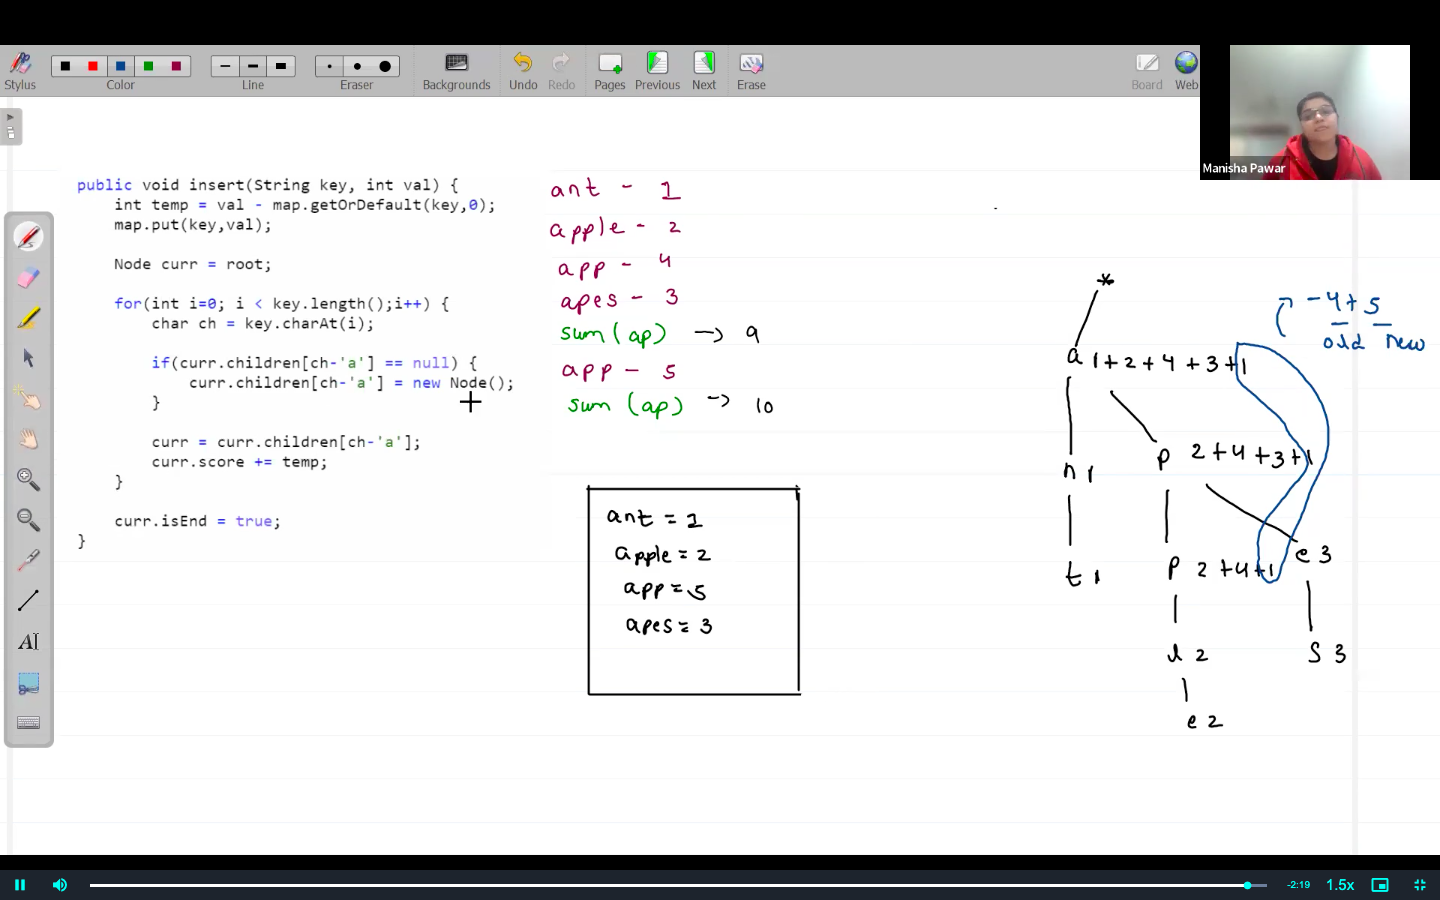 Stylus
Color
Line
Eraser
Backgrounds
Undo
Redo
Pages
Previous
Next
Erase
Board
Web
Manisha Pawar
public void insert(String key, int val) {
int temp = val - map.getOrDefault(key,0);
map.put(key,val);
Node curr = root;
for(int i=0; i < key.length();i++) {
char ch = key.charAt(i);
if(curr.children[ch-'a'] == null) {
curr.children[ch-'a'] = new Node();
}
curr = curr.children[ch-'a'];
curr.score += temp;
}
curr.isEnd = true;
}
AI
ant - 1
apple - 2
app - 4
apes - 3
sum(ap) -> 9
app - 5
sum (ap) -> 10
ant = 1
apple = 2
app = 5
apes = 3
*
-4+5
old new
a 1+2+4+3+1
n 1
p 2+4+3+1
t 1
p 2+4+1
e 3
l 2
s 3
e 2
-2:19
1.5x